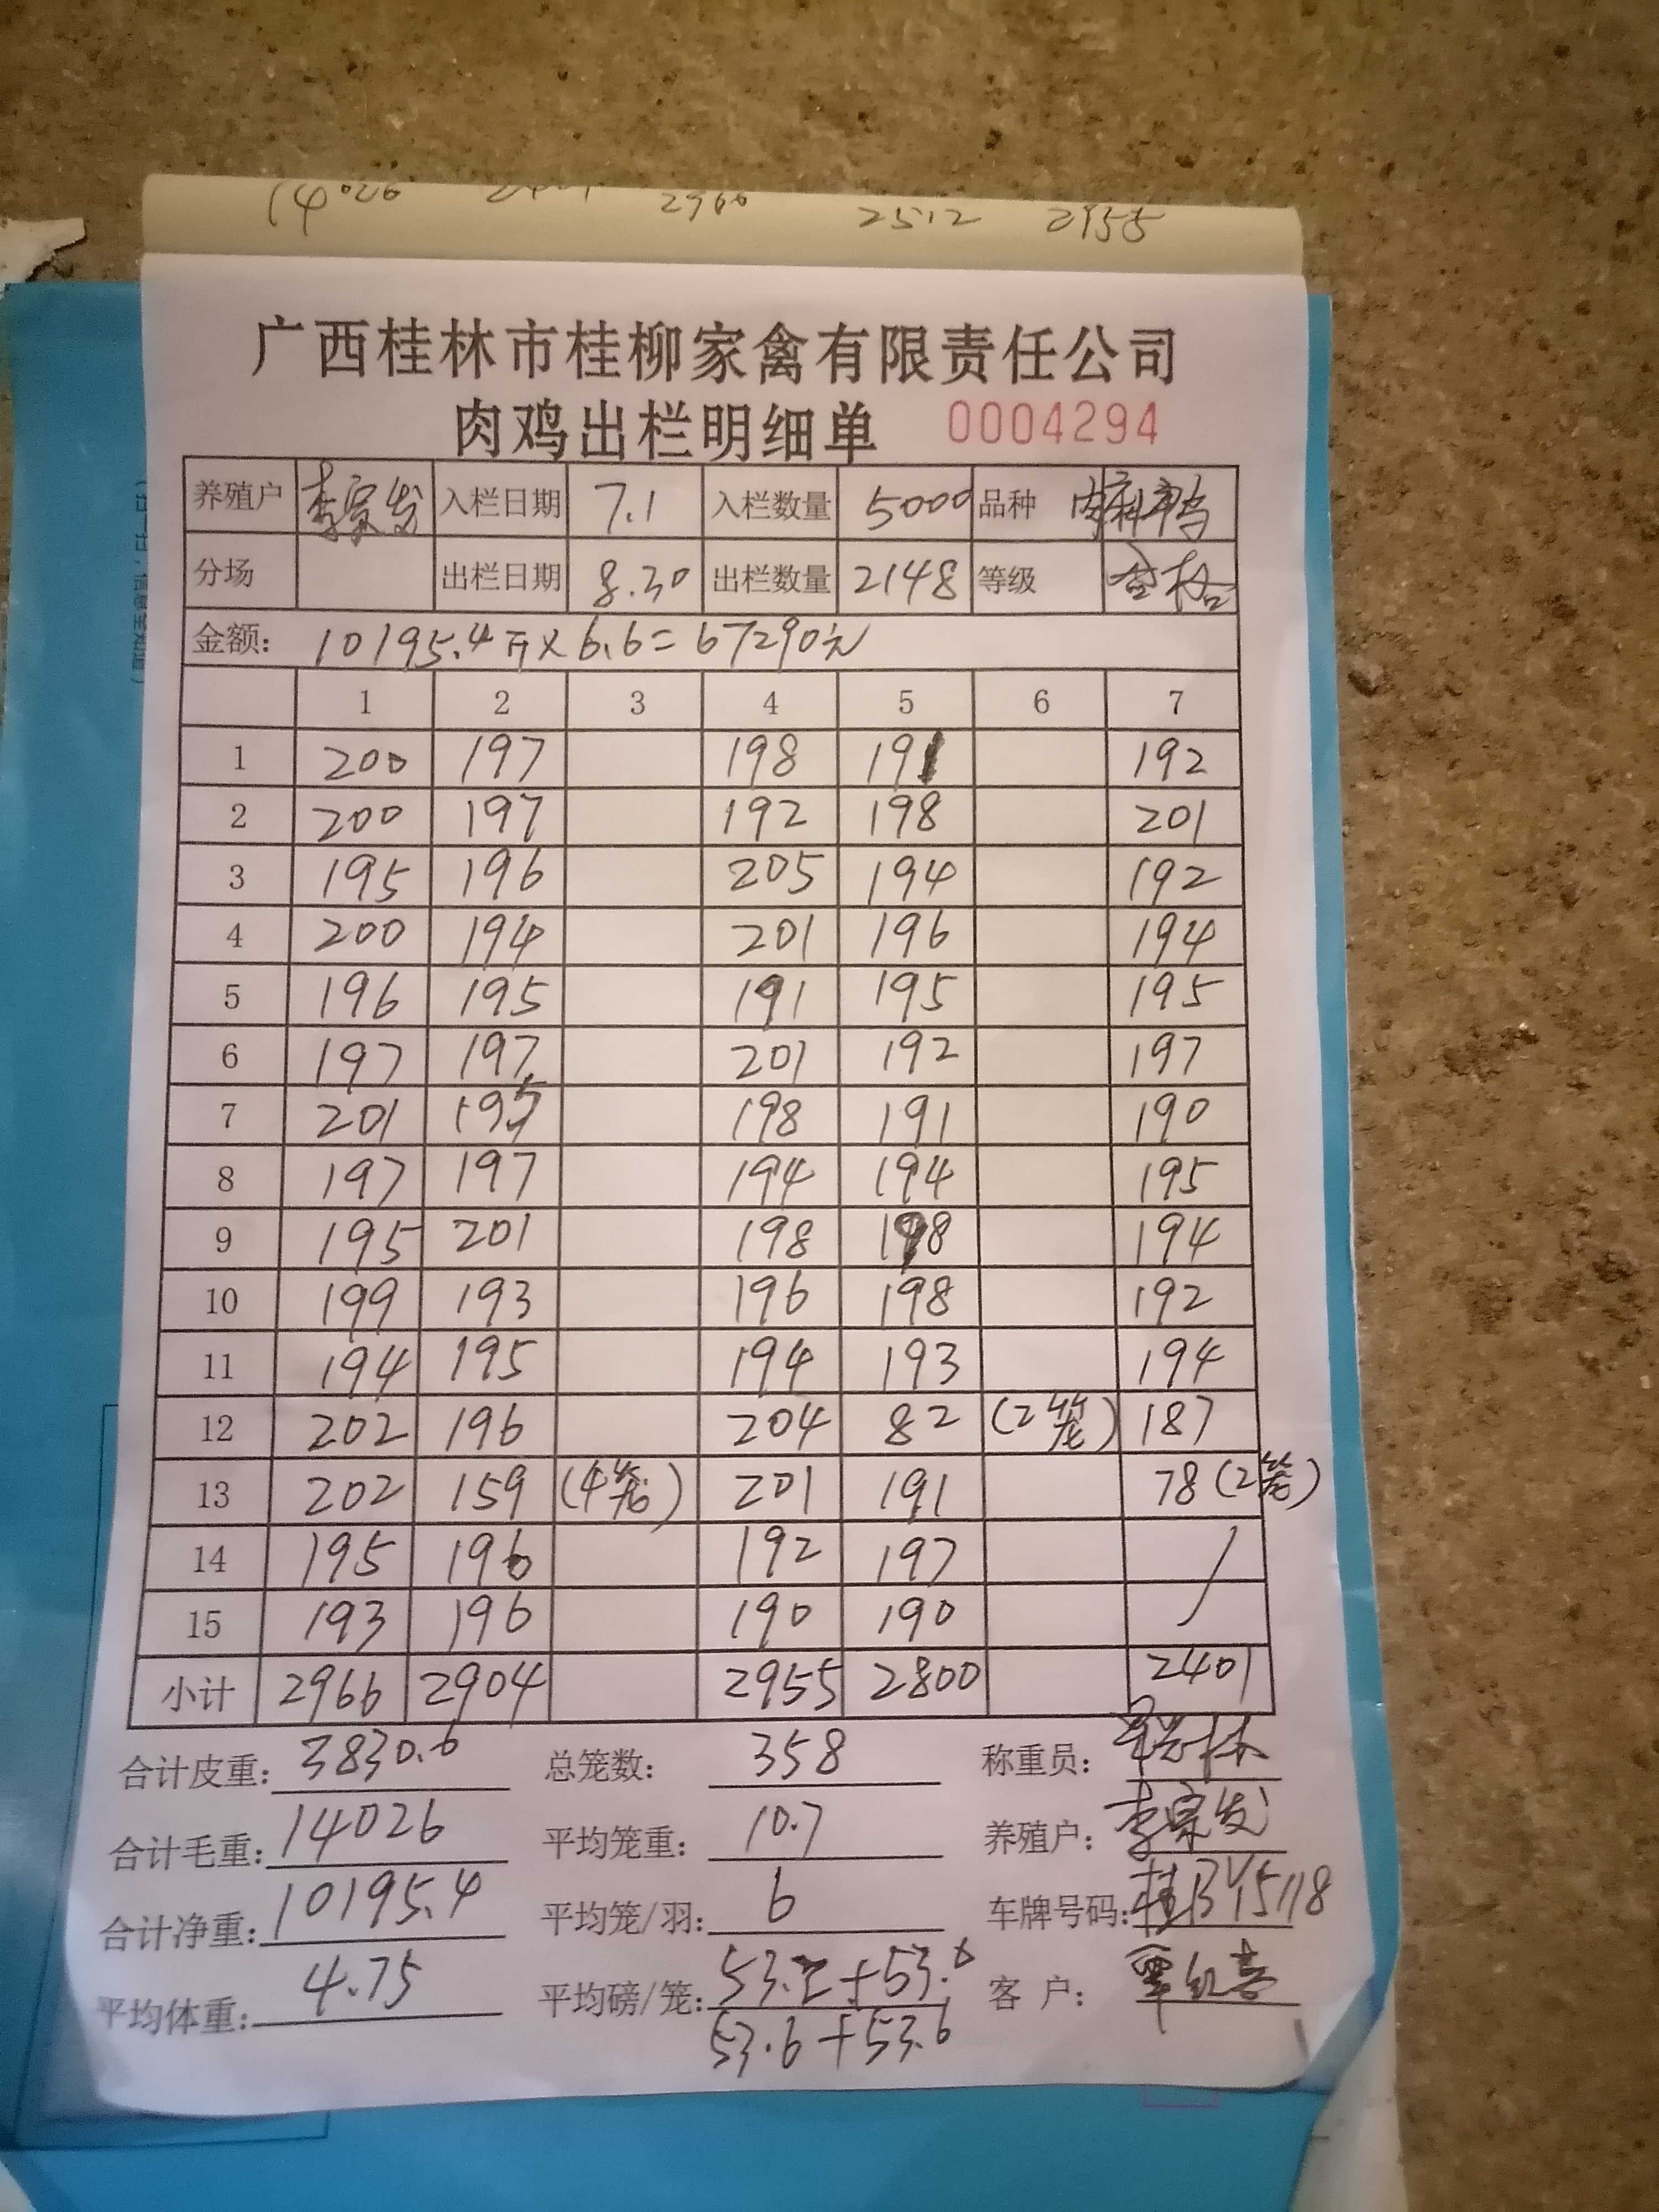 14026 2960 2512 2955
广西桂林市桂柳家禽有限责任公司
肉鸡出栏明细单 0004294
养殖户 李宗发 入栏日期 7.1 入栏数量 5000 品种
分场 出栏日期 8.30 出栏数量 2148 等级 合格
金额: 10195.4斤×6.6=67290元
1 2 3 4 5 6 7
1 200 197 198 191 192
2 200 197 192 198 201
3 195 196 205 194 192
4 200 194 201 196 194
5 196 195 191 195 195
6 197 197 201 192 197
7 201 195 198 191 190
8 197 197 194 194 195
9 195 201 198 198 194
10 199 193 196 198 192
11 194 195 194 193 194
12 202 196 204 82 (2笼) 187
13 202 159 (4笼) 201 191 78 (2笼)
14 195 196 192 197
15 193 196 190 190
小计 2966 2904 2955 2800 2401
合计皮重: 3830.6 总笼数: 358 称重员:
合计毛重: 14026 平均笼重: 10.7 养殖户: 李宗发
合计净重: 10195.4 平均笼/羽: 6 车牌号码: 桂BY5118
平均体重: 4.75 平均磅/笼: 53.2+53.6 客 户:
53.6+53.6